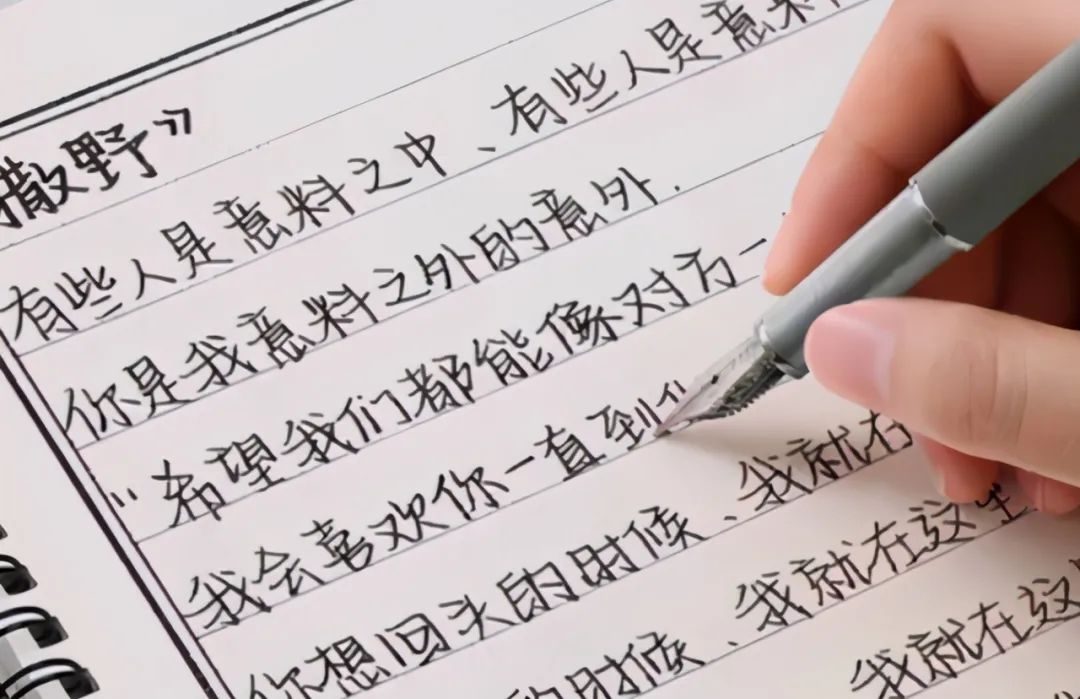 撒野》
有些人是意料之中、有些人是意料
你是我意料之外的意外.
“希望我们都能像对方一
我会喜欢你一直到
你想回头的时候、我就在
的时候、我就在这
我就在这